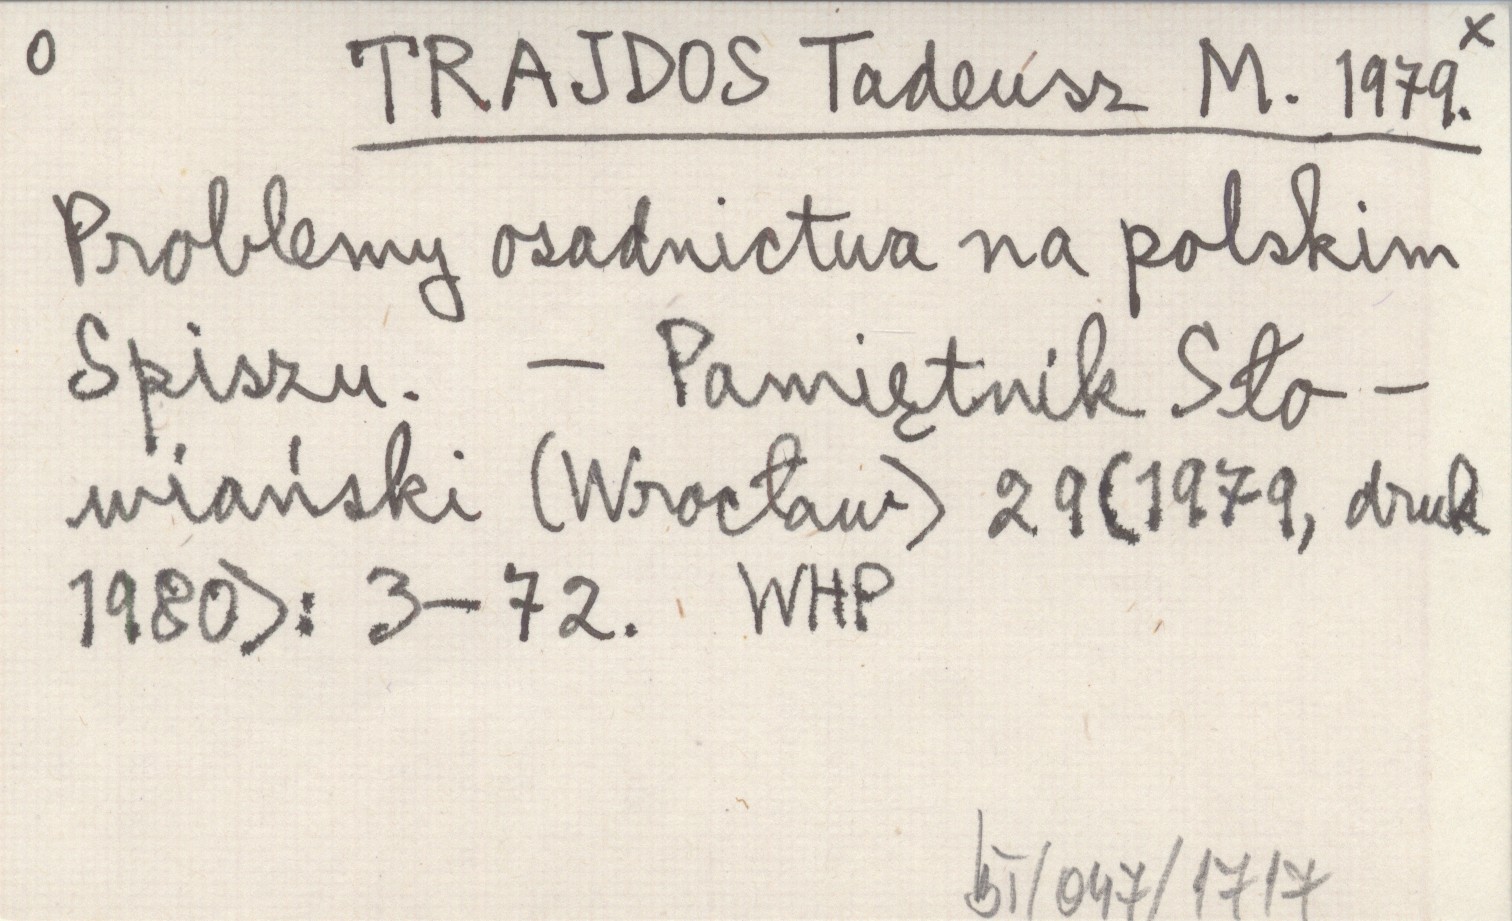 0 TRAJDOS Tadeusz M. 1979.x
Problemy osadnictwa na polskim
Spiszu. – Pamiętnik Sło-
wiański (Wrocław) 29(1979, druk
1980): 3–72. WHP
BI/047/1717